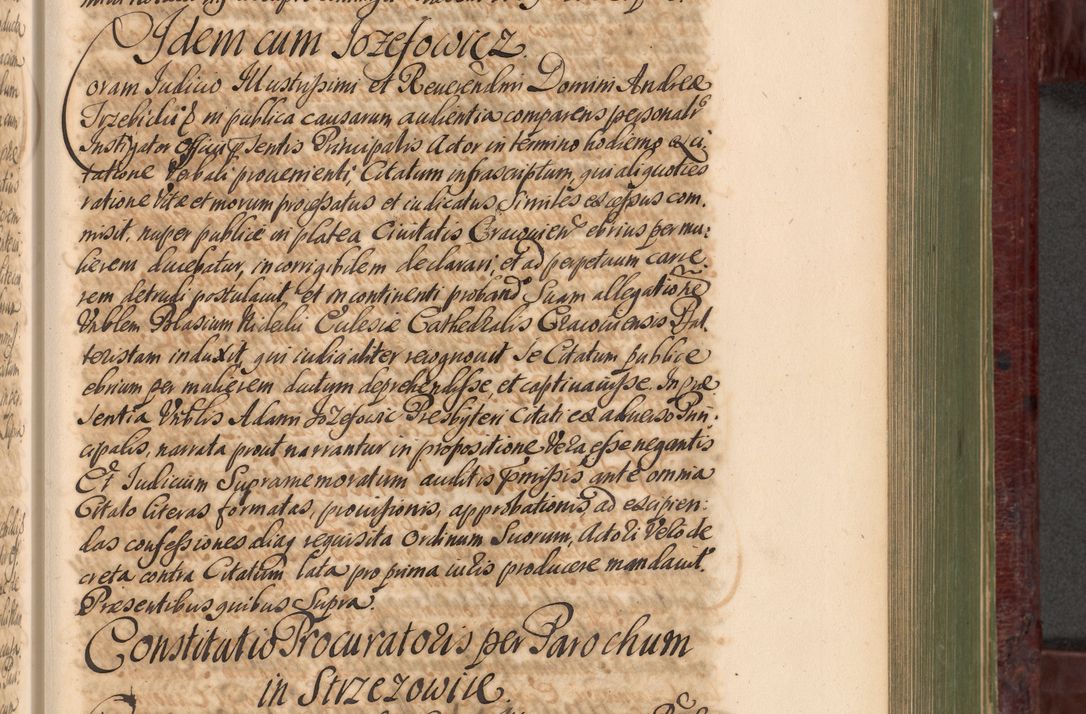 Idem cum Jozefowicz.
Coram Iudicio Illustrissimi et Reuerendmi Domini Andreæ
Trzebicki & in publica causarum audientia comparens personalr
Instigator Officii pñsentis Principalis Actor in termino hodierno ex ci
tatione Verbali proueniente, Citatum infrascriptum, qui aliquoties
ratione Vitæ et morum processatus et iudicatus, Similes excessus com,
misit, nuper publice in platea Ciuitatis Cracouien ebrius per mu:
lierem ducebatur, incorrigibilem declarari, et ad perpetuum carce
rem detrudi postulauit, et in continenti proband Suam allegationẽ
Vnblem Blasium Ecclesiæ Cathedralis Cracouiensis Psal
teristam induxit, qui iudicialiter recognouit Se Citatum publice
ebrium per mulierem ductum deprehendisse, et captinauisse. In præ
sentia Vnblis Adami Jozefowic Presbyteri Citati ex aduerso Prin:
cipalis, narrata prout narrantur in propositione Vera esse negantis
Et Iudicium Supramemoratum auditis pmissis ante omnia
Citato literas formatas, prouisionis, approbationis ad excipien:
das confessiones aliaq requisita Ordinum Suorum, Actori Vero de
creta contra Citatum lata pro prima iuris producere mandauit.
Præsentibus quibus Supra.
Constitutio Procuratoris per Parochum
in Strzezowice.